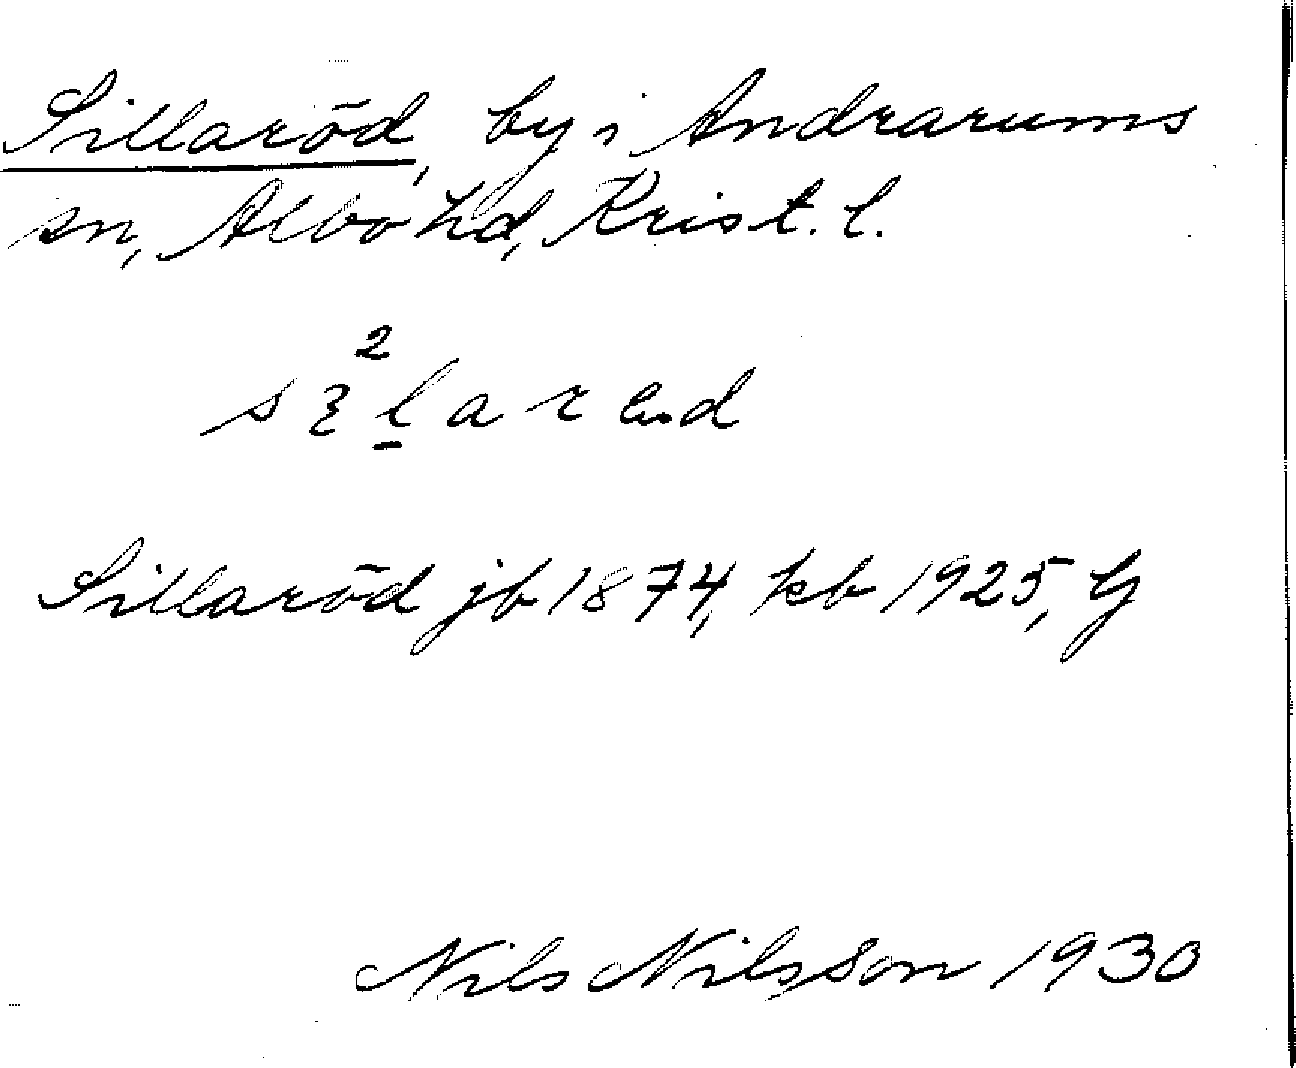 Sillaröd, by i Andrarums
sn, Albo hd, Krist. l.
2
Sillaröd jb 1874, kb 1925, G
Nils Nilsson 1930